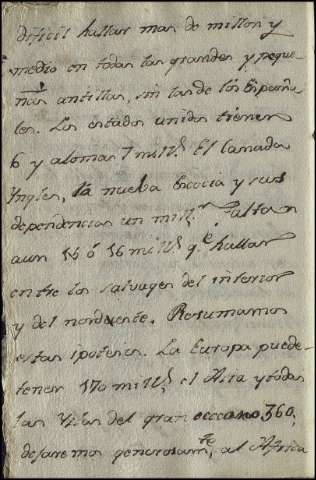 dificil hallar mas de millon y
medio en todas las grandes y peque-
ñas antillas, sin las de los Españo-
les. Los estados unidos tienen
6 y alomas 7 mill.s El Canada
Yngles, la nueba Escocia y sus
dependencias un mill.n faltan
aun 15 ó 16 mill.s q.e hallar
entre los salvages del interior
y del nordueste. Resumamos
estas ipotesis. La Europa puede
tener 170 mill.s, el Asia y todas
las Yslas del gran occeano 360,
dejaremos generosam.te al Africa